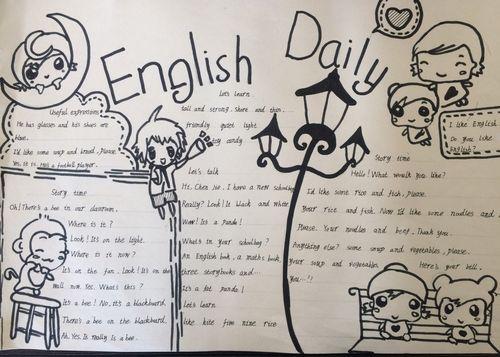 English Daily
Useful expressions
He has glasses and his shoes are
blue.
I'd like some soup and bread, Please.
Yes, it is. He's a football player.
Story time
Oh! There's a bee in our classroom.
Where is it?
Look! It's on the light.
Where is it now?
It's on the fan. Look! It's on the
wall now. See. What's this?
It's a bee! No. It's a blackboard.
There's a bee on the blackboard.
Ah. Yes. Is really is a bee.
Lets learn
tall and strong. short and thin
friendly quiet light
candy
Let's talk
Hi, Chen. No. I have a new schoolbag
Really? Look! It black and white.
Wow! It's a panda!
What's in your schoolbag?
An English book, a maths book,
three storybooks and...
It's a fat panda!
Lets learn
like kite five nine rice
I like English.
Do you like
English?
Story time
Hello! What would you like?
I'd like some rice and fish, please.
Your rice and fish. Now I'd like some noodles and
Please. Your noodles and beef. Thank you.
Anything else? some soup and vegetables, please.
Your soup and vegetables. Here's your bill.
Yes...!!